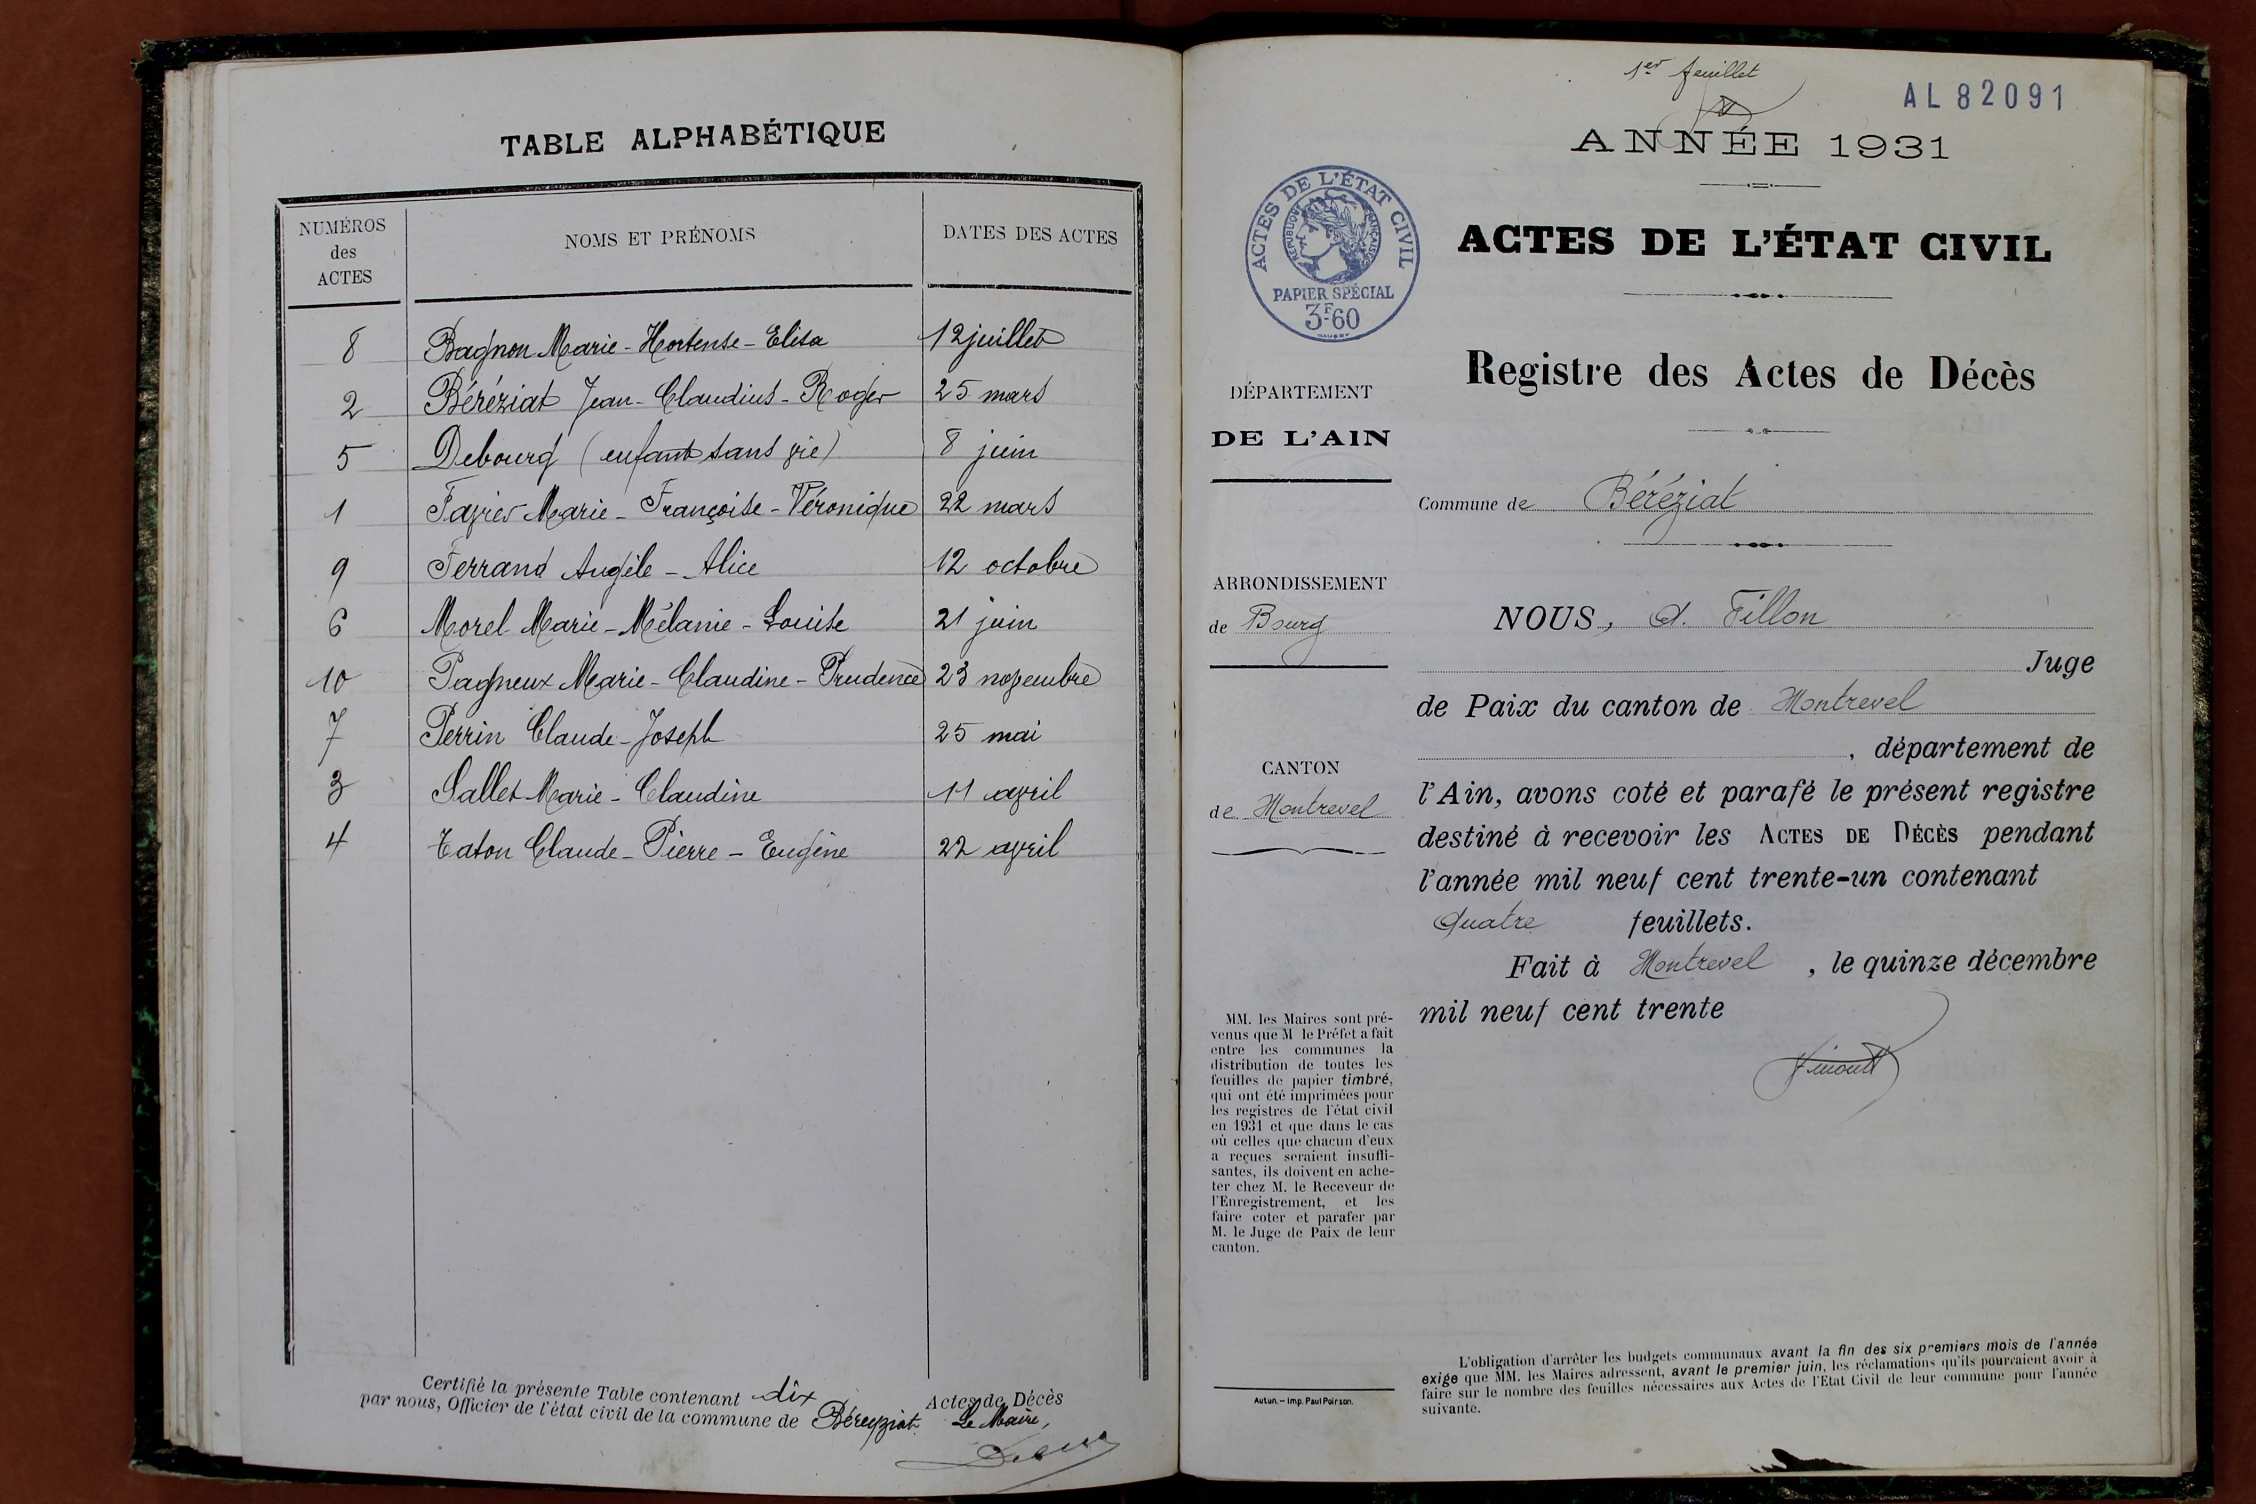 TABLE ALPHABÉTIQUE
NUMÉROS des ACTES NOMS ET PRÉNOMS DATES DES ACTES
8 Bagnon Marie-Hortense-Elisa 12 juillet
2 Béréziat Jean-Claudius-Roger 25 mars
5 Debourg (enfant sans vie) 8 juin
1 Favier Marie-Françoise-Véronique 22 mars
9 Ferrand Angèle-Alice 12 octobre
6 Morel Marie-Mélanie-Louise 21 juin
10 Pagneux Marie-Claudine-Prudence 23 novembre
7 Perrin Claude-Joseph 25 mai
3 Sallet Marie-Claudine 11 avril
4 Taton Claude-Pierre-Eugène 22 avril
Certifié la présente Table contenant dix Actes de Décès
par nous, Officier de l'état civil de la commune de Béreyziat
Le Maire,
1er feuillet
AL 82091
ANNÉE 1931
ACTES DE L'ÉTAT CIVIL
RÉPUBLIQUE FRANÇAISE
PAPIER SPÉCIAL
3F.60
ACTES DE L'ÉTAT CIVIL
Registre des Actes de Décès
DÉPARTEMENT
DE L'AIN
Commune de Béréziat
ARRONDISSEMENT
de Bourg
NOUS, A. Fillon
Juge
de Paix du canton de Montrevel
, département de
CANTON
de Montrevel
l'Ain, avons coté et parafé le présent registre
destiné à recevoir les ACTES DE DÉCÈS pendant
l'année mil neuf cent trente-un contenant
Quatre feuillets.
Fait à Montrevel, le quinze décembre
mil neuf cent trente
MM. les Maires sont pré-
venus que M le Préfet a fait
entre les communes la
distribution de toutes les
feuilles de papier timbré,
qui ont été imprimées pour
les registres de l'état civil
en 1931 et que dans le cas
où celles que chacun d'eux
a reçues seraient insuffi-
santes, ils doivent en ache-
ter chez M. le Receveur de
l'Enregistrement, et les
faire coter et parafer par
M. le Juge de Paix de leur
canton.
Autun. – Imp. Paul Poirson.
L'obligation d'arrêter les budgets communaux avant la fin des six premiers mois de l'année
exige que MM. les Maires adressent, avant le premier juin, les réclamations qu'ils pourraient avoir à
faire sur le nombre des feuilles nécessaires aux Actes de l'Etat Civil de leur commune pour l'année
suivante.